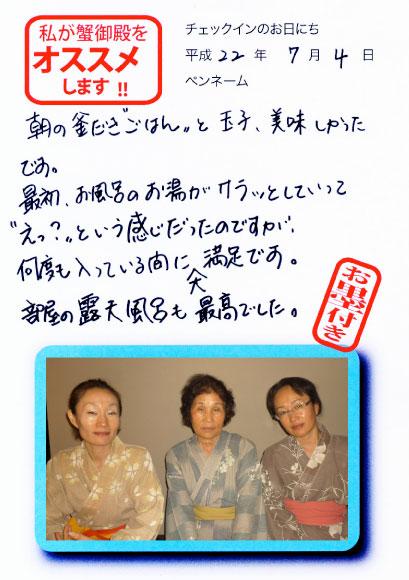 私が蟹御殿を
オススメ
します!!
チェックインのお日にち
平成 22 年 7 月 4 日
ペンネーム
朝の釜だき"ごはん"と玉子、美味しかった
です。
最初、お風呂のお湯がサラッとしていって
"えっ?"という感じだったのですが、
何度も入っている間に大満足です。
部屋の露天風呂も最高でした。
お墨付き